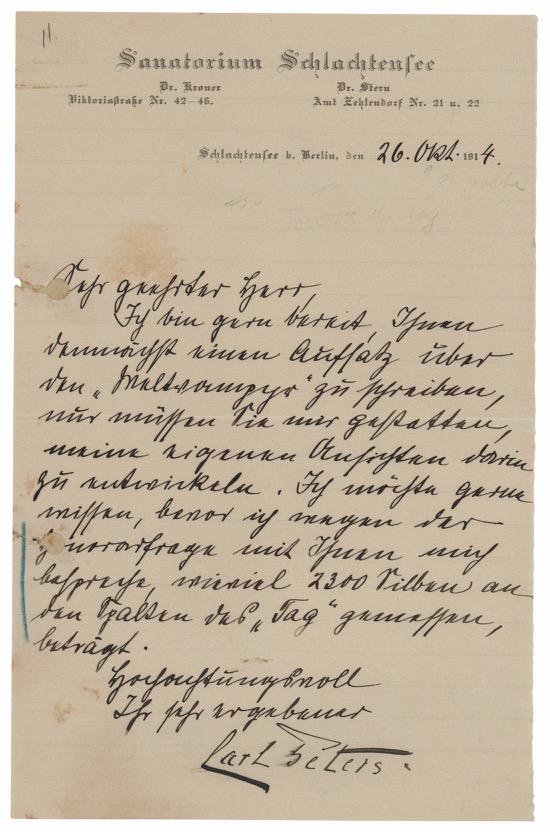 11
Sanatorium Schlachtensee
Dr. Kroner Dr. Stern
Viktoriastraße Nr. 42-46. Amt Zehlendorf Nr. 21 u. 22
Schlachtensee b. Berlin, den 26. Okt. 1914.
Sehr geehrter Herr,
Ich bin gern bereit, Ihnen
demnächst einen Aufsatz über
den „Weltvampyr" zu schreiben,
nur müssen Sie mir gestatten,
meine eigenen Ansichten darin
zu entwickeln. Ich möchte gerne
wissen, bevor ich wegen der
Honorarfrage mit Ihnen mich
bespreche, wieviel 2300 Silben an
den Spalten des „Tag" gemessen,
beträgt.
Hochachtungsvoll
Ihr sehr ergebener
Carl Peters.